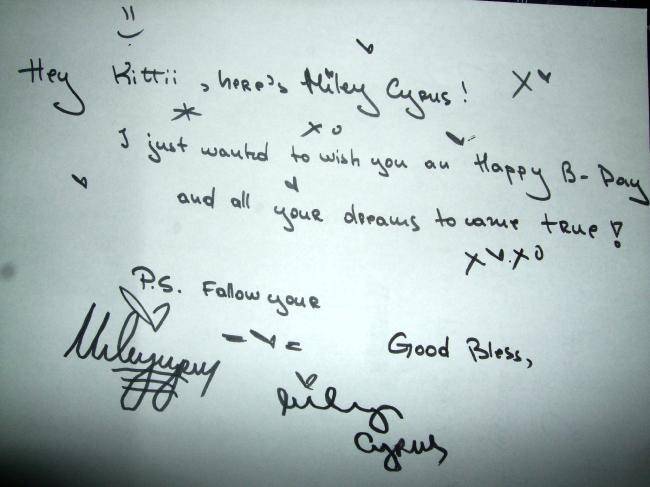 Hey Kittii, here's Miley Cyrus!
I just wanted to wish you an Happy B-Day
and all your dreams to came true!
P.S. Follow your
Good Bless,
Miley
Cyrus